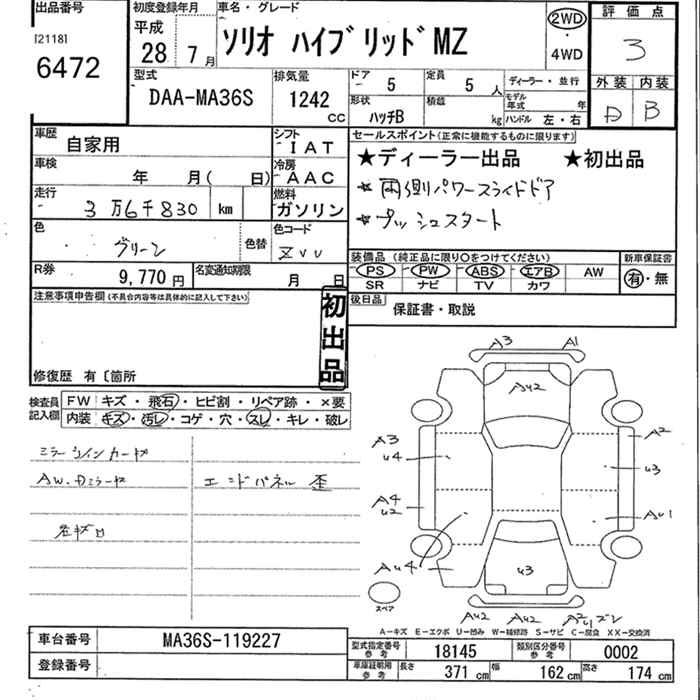 出品番号
[2118]
6472
初度登録年月
平成
28年 7月
車名・グレード
ソリオ ハイブリッドMZ
2WD
・
4WD
評価点
3
外装 内装
D B
型式
DAA-MA36S
排気量
1242
CC
ドア
5
定員
5 人
形状
ハッチB
積載
kg
ディーラー・並行
モデル年式 年
ハンドル 左・右
車歴
自家用
シフト
IAT
車検
年 月( 日)
冷房
AAC
走行
3万6千830 km
燃料
ガソリン
色
グリーン
色替
色コード
ZVU
R券
9,770円
名変通知期限
月 日
セールスポイント(正常に機能するものに限ります)
★ディーラー出品 ★初出品
☆両側パワースライドドア
☆プッシュスタート
装備品 (純正品に限り○をつけてください)
PS PW ABS エアB AW
SR ナビ TV カワ
新車保証書
有・無
後日品
保証書・取説
注意事項申告欄(不具合内容等は具体的に記入して下さい)
初出品
修復歴 有〔箇所
検査員記入欄
FW キズ・飛石・ヒビ割・リペア跡・×要
内装 キズ・汚レ・コゲ・穴・スレ・キレ・破レ
エンドパネル 歪
A3 A1
AU2
A3
U4
A2
U3
A4
U2
AU1
AU4
U3
スペア
AU2 AU2
A-キズ E-エクボ U-凹み W-補修跡 S-サビ C-腐食 XX-交換済
車台番号
MA36S-119227
登録番号
型式指定番号
参考
18145
類別区分番号
参考
0002
車庫証明用
参考
長さ
371 cm
幅
162 cm
高さ
174 cm